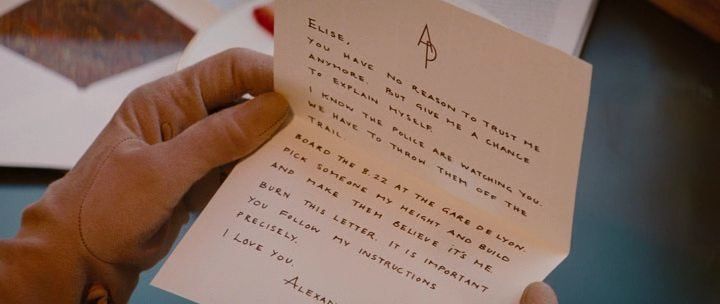 AP
ELISE,
YOU HAVE NO REASON TO TRUST ME
ANYMORE. BUT GIVE ME A CHANCE
TO EXPLAIN MYSELF.
I KNOW THE POLICE ARE WATCHING YOU.
WE HAVE TO THROW THEM OFF THE
TRAIL.
BOARD THE 8.22 AT THE GARE DE LYON.
PICK SOMEONE MY HEIGHT AND BUILD
AND MAKE THEM BELIEVE IT'S ME
BURN THIS LETTER. IT IS IMPORTANT
YOU FOLLOW MY INSTRUCTIONS
PRECISELY.
I LOVE YOU.